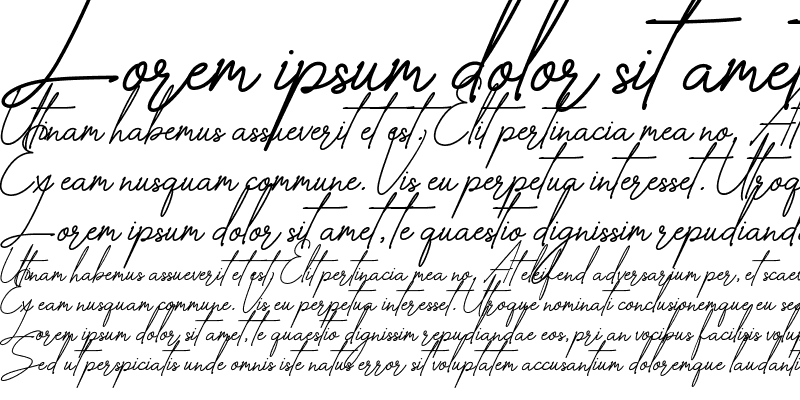 Lorem ipsum dolor sit amet
Utinam habemus assueverit et est, Elit pertinacia mea no, At
Ex eam nusquam commune. Vis eu perpetua interesset. Utroq
Lorem ipsum dolor sit amet, te quaestio dignissim repudianda
Utinam habemus assueverit et est, Elit pertinacia mea no, At eleifend adversarium per, et scaev
Ex eam nusquam commune. Vis eu perpetua interesset. Utroque nominati conclusionemque eu sea
Lorem ipsum dolor sit amet, te quaestio dignissim repudiandae eos, pri an vocibus facilisis volup
Sed ut perspiciatis unde omnis iste natus error sit voluptatem accusantium doloremque laudanti